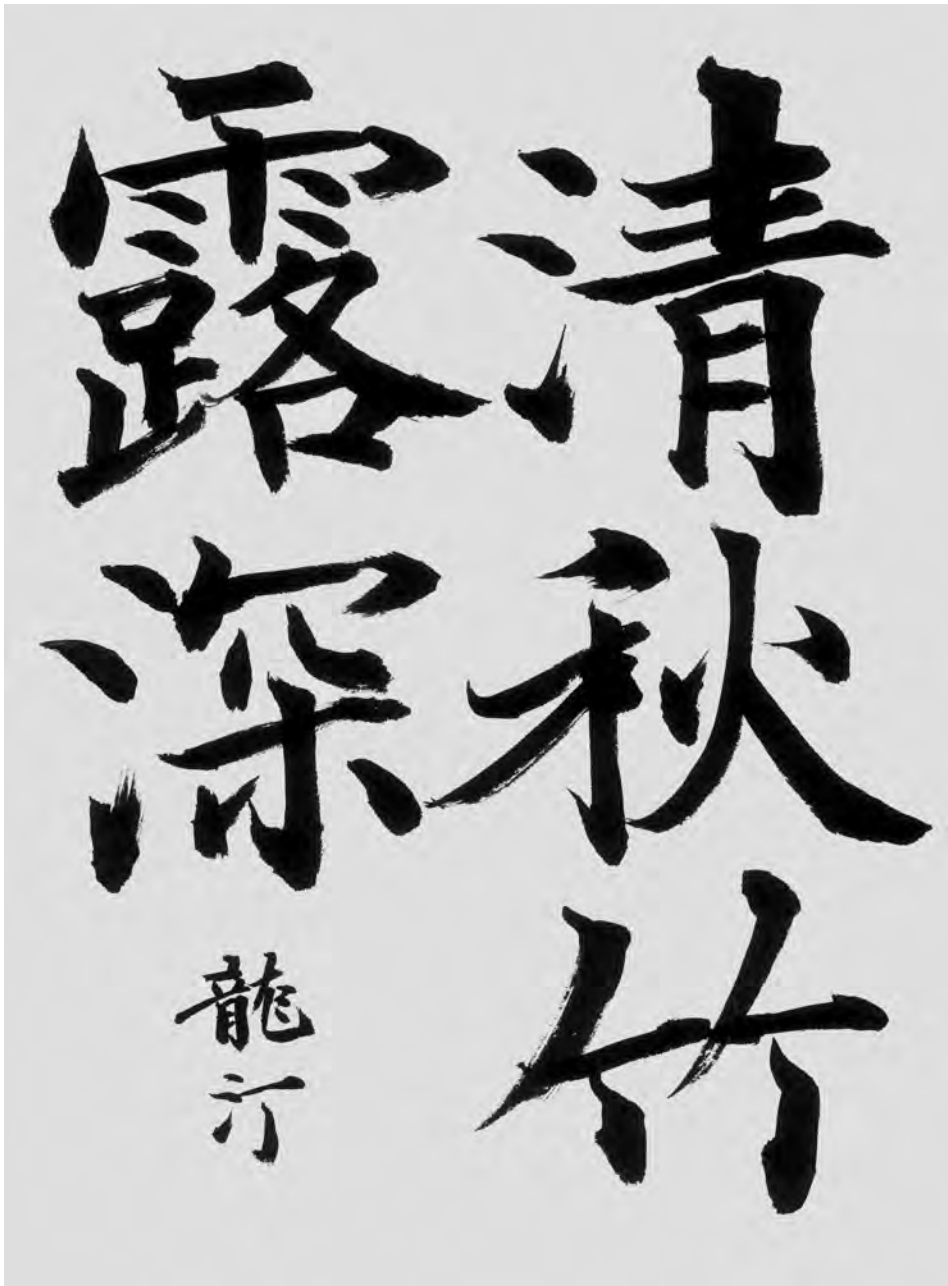 清秋竹
露深
龍汀